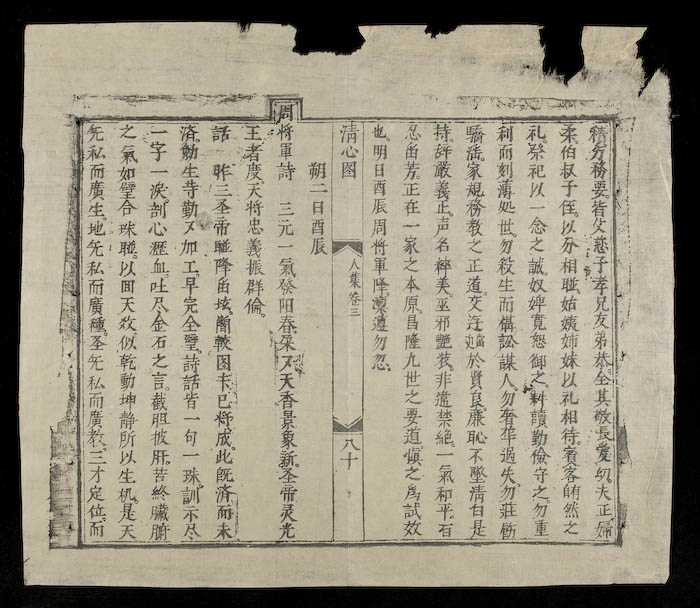 精方務要皆父慈子孝兄友弟恭全其敬長愛幼夫正婦
柔伯叔子侄以分相聮姑姨姉妹以礼相待賓客銪然之
礼祭祀以一念之誠奴婢寬恕御之耕讀勤儉守之勿重
利而刻薄処世勿殺生而搆訟謀人勿奢華過失勿莊
驕滛家規務敎之正道交遊於賢良廉恥不墜淸白是
持評嚴義正声名粹美巫邪艶妓非遣禁絶一氣和平石
忍畱芳正在一家之本原昌隆九世之要道愼之爲試效
也明日酉辰周將軍降凛遵勿忽
清心图 人集卷三 八十
朔二日酉辰
周將軍詩 三元一氣發陽春采又天香景象新圣帝灵光
王者度天將忠義振群倫
話 昨三圣帝聮降畄玹蕳較图卡已將成此旣済而未
済勉生寺勤又加工早完全璧詩話皆一句一珠訓示尽
一字一淚剖心瀝血吐尽金石之言截胆披肝苦終臟腑
之氣如璧合珠聮以囬天效似乾動坤静所以生机是天
旡私而廣生地旡私而廣種圣旡私而廣敎三才定位而